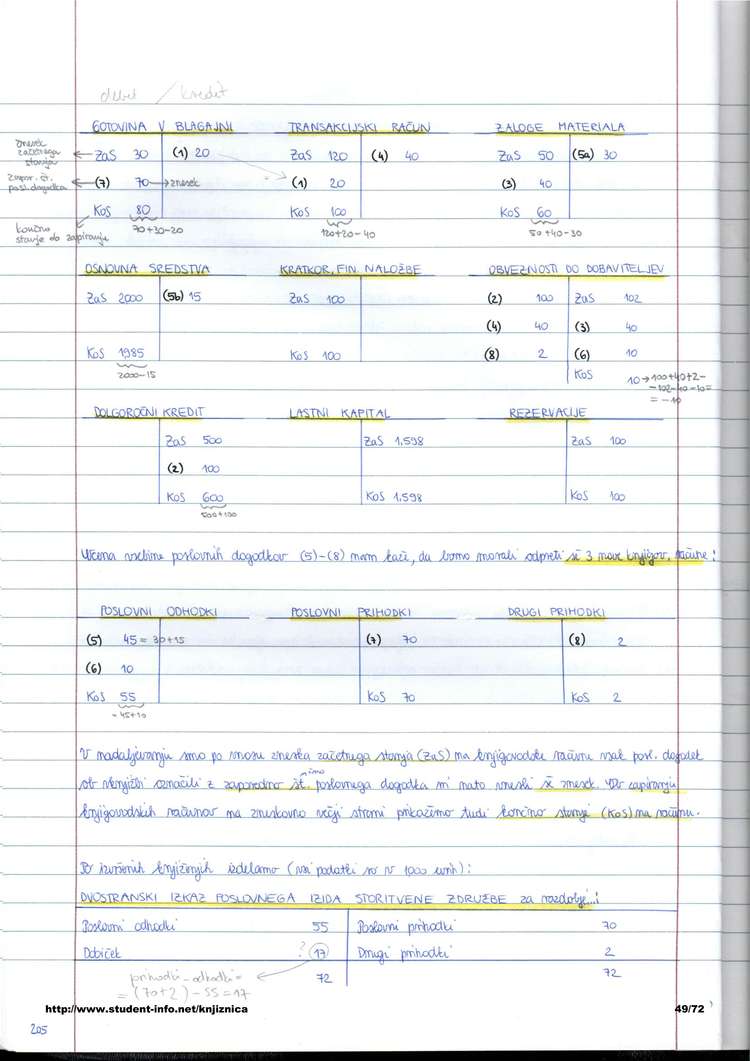 debet / kredit
GOTOVINA V BLAGAJNI TRANSAKCIJSKI RAČUN ZALOGE MATERIALA
znesek začetnega stanja ← ZaS 30 (1) 20 ZaS 120 (4) 40 ZaS 50 (5a) 30
zapor. št. posl. dogodka ← (7) 70 → znesek (1) 20 (3) 40
KoS 80 KoS 100 KoS 60
končno stanje ob zapiranju 70+30-20 120+20-40 50+40-30
OSNOVNA SREDSTVA KRATKOR. FIN. NALOŽBE OBVEZNOSTI DO DOBAVITELJEV
ZaS 2000 (5b) 15 ZaS 100 (2) 100 ZaS 102
(4) 40 (3) 40
KoS 1985 KoS 100 (8) 2 (6) 10
2000-15 KoS 10 → 100+40+2-
-102-40-10=
= -10
DOLGOROČNI KREDIT LASTNI KAPITAL REZERVACIJE
ZaS 500 ZaS 1.598 ZaS 100
(2) 100
KoS 600 KoS 1.598 KoS 100
500+100
vsebine poslovnih dogodkov (5)-(8) nam kaže, da bomo morali odpreti še 3 nove knjigov. račune!
POSLOVNI ODHODKI POSLOVNI PRIHODKI DRUGI PRIHODKI
(5) 45 = 30+15 (7) 70 (8) 2
(6) 10
KoS 55 KoS 70 KoS 2
45+10
V nadaljevanju smo po vnosu zneska začetnega stanja (ZaS) na knjigovodske račune vsak posl. dogodek
ob vknjižbi označili z zaporedno št. poslovnega dogodka in nato vnesli še znesek. Ob zapiranju
knjigovodskih računov na zneskovno večji strani prikažemo tudi končno stanje (KoS) na računu.
Po izvršenih knjiženjih izdelamo (vsi podatki so v 1000 eurih):
DVOSTRANSKI IZKAZ POSLOVNEGA IZIDA STORITVENE ZDRUŽBE za razdobje...:
Poslovni odhodki 55 Poslovni prihodki 70
Dobiček ? 17 Drugi prihodki 2
prihodki - odhodki = 72 72
= (70+2) - 55 = 17
http://www.student-info.net/knjiznica 49/72
205